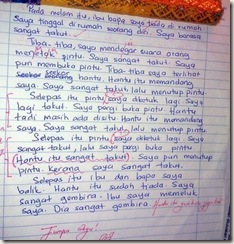 Pada malam itu, ibu bapa saya tiada di rumah
Saya tinggal di rumah seorang diri. Saya berasa
sangat takut.
Tiba-tiba, saya mendengar suara orang
mengetok pintu. Saya sangat takut. Saya
pun membuka pintu. Tiba-tiba saya terlihat
seekor hantu. Hantu itu memandang
saya. Saya sangat takut lalu menutup pintu.
Selepas itu pintu saya diketuk lagi. Saya
lagi takut. Saya pergi buka pintu. Hantu
tadi masih ada disitu. Hantu itu memandang
saya. Saya sangat takut lalu menutup pintu.
Selepas itu pintu saya diketuk lagi. Saya
sangat takut, lalu saya pergi buka pintu
(Hantu itu sangat takut). Saya pun menutup
pintu kerana saya sangat takut.
Selepas itu ibu dan bapa saya
balik. Hantu itu sudah tiada. Saya
sangat gembira. Ibu saya memeluk
saya. Dia sangat gembira.